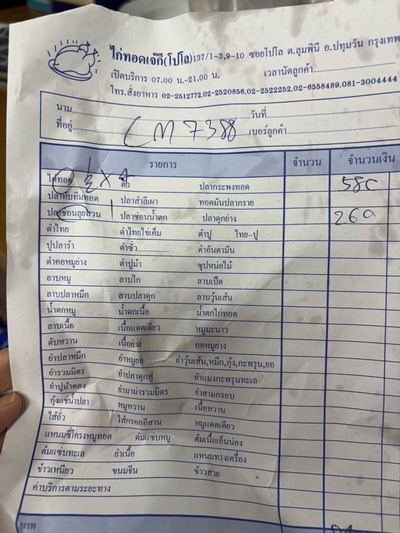 ไก่ทอดเจ๊กี(โปโล)137/1-3,9-10 ซอยโปโล ต.ลุมพินี อ.ปทุมวัน กรุงเทพ
เปิดบริการ 07.00 น.-21.00 น. เวลานัดลูกค้า
โทร.สั่งอาหาร 02-2512772,02-2520856,02-2522252,02-6558489,081-3004444
นาม วันที่
ที่อยู่ CM7388 เบอร์ลูกค้า
รายการ จำนวน จำนวนเงิน
ไก่ทอด ½ x 4 ตัว ปลากระพงทอด 580
ปลาทับทิมทอด ปลาสำลีเผา ทอดมันปลากราย
ปลาช่อนลุยสวน 1 ปลาช่อนน้ำตก ปลาดุกย่าง 260
ตำไทย ตำไทยไข่เค็ม ตำปู ไทย-ปู
ปูปลาร้า ตำซั่ว ตำอันดามัน
ตำคอหมูย่าง ตำปูม้า ซุปหน่อไม้
ลาบหมู ลาบไก่ ลาบเป็ด
ลาบปลาหมึก ลาบปลาดุก ลาบวุ้นเส้น
น้ำตกหมู น้ำตกเนื้อ น้ำตกไก่ทอด
ลาบเนื้อ เนื้อแดดเดียว หมูมะนาว
ตับหวาน เนื้อย่าง คอหมูย่าง
ยำปลาหมึก ยำหมูยอ ยำวุ้นเส้น,หมึก,กุ้ง,กะพรุน,ยอ
ยำรวมมิตร ยำปลาดุกฟู ยำแมงกะพรุนทะเล
ยำปูม้าดอง ยำมาม่ารวมมิตร ยำสามกรอบ
กุ้งแช่น้ำปลา หมูหวาน เนื้อหวาน
ไส้อั่ว ไส้กรอกอีสาน หมูแดดเดียว
แหนมซี่โครงหมูทอด ต้มแซ่บหมู ต้มเนื้อเอ็นน่อง
ต้มแซ่บทะเล ยำเนื้อ แหนมทรงเครื่อง
ข้าวเหนียว ขนมจีน ข้าวสวย
ค่าบริการตามระยะทาง
บาท